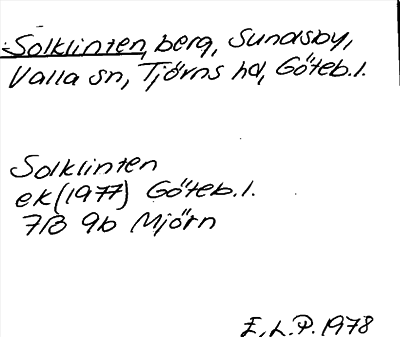 Solklinten, berg, Sundsby,
Valla sn, Tjörns hd, Göteb.l.
Solklinten
ek (1977) Göteb.l.
7B 9b Mjörn
E.L.P. 1978